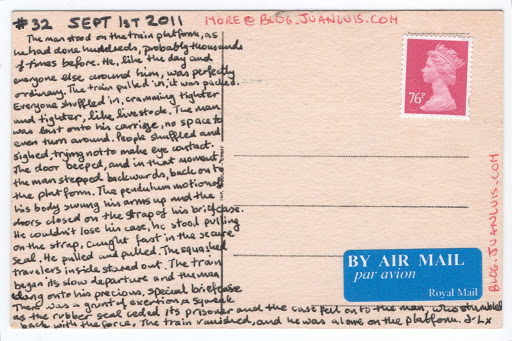 #32 SEPT 1ST 2011
MORE@BLOG.JUANLUIS.COM
The man stood on the train platform, as
he had done hundreds, probably thousands
of times before. He, like the day and
everyone else around him, was perfectly
ordinary. The train pulled in, it was packed.
Everyone shuffled in, cramming tighter
and tighter, like livestock. The man
was last onto his carriage, no space to
even turn around. People shuffled and
sighed, trying not to make eye contact.
The door beeped, and in that moment
the man stepped backwards, back onto
the platform. The pendulum motion of
his body swung his arms up and the
doors closed on the strap of his briefcase.
He couldn't lose his case, he stood pulling
on the strap, caught fast in the secure
seal. He pulled and pulled. The squashed
travelers inside stared out. The train
began its slow departure and the man
clung onto his precious, special briefcase
There was a grunt of exertion, a squeak
as the rubber seal ceded its prisoner and the case fell onto the man, who stumbled
back with the force. The train vanished, and he was alone on the platform. J-Lx
76P
BLOG.JUANLUIS.COM
BY AIR MAIL
par avion
Royal Mail